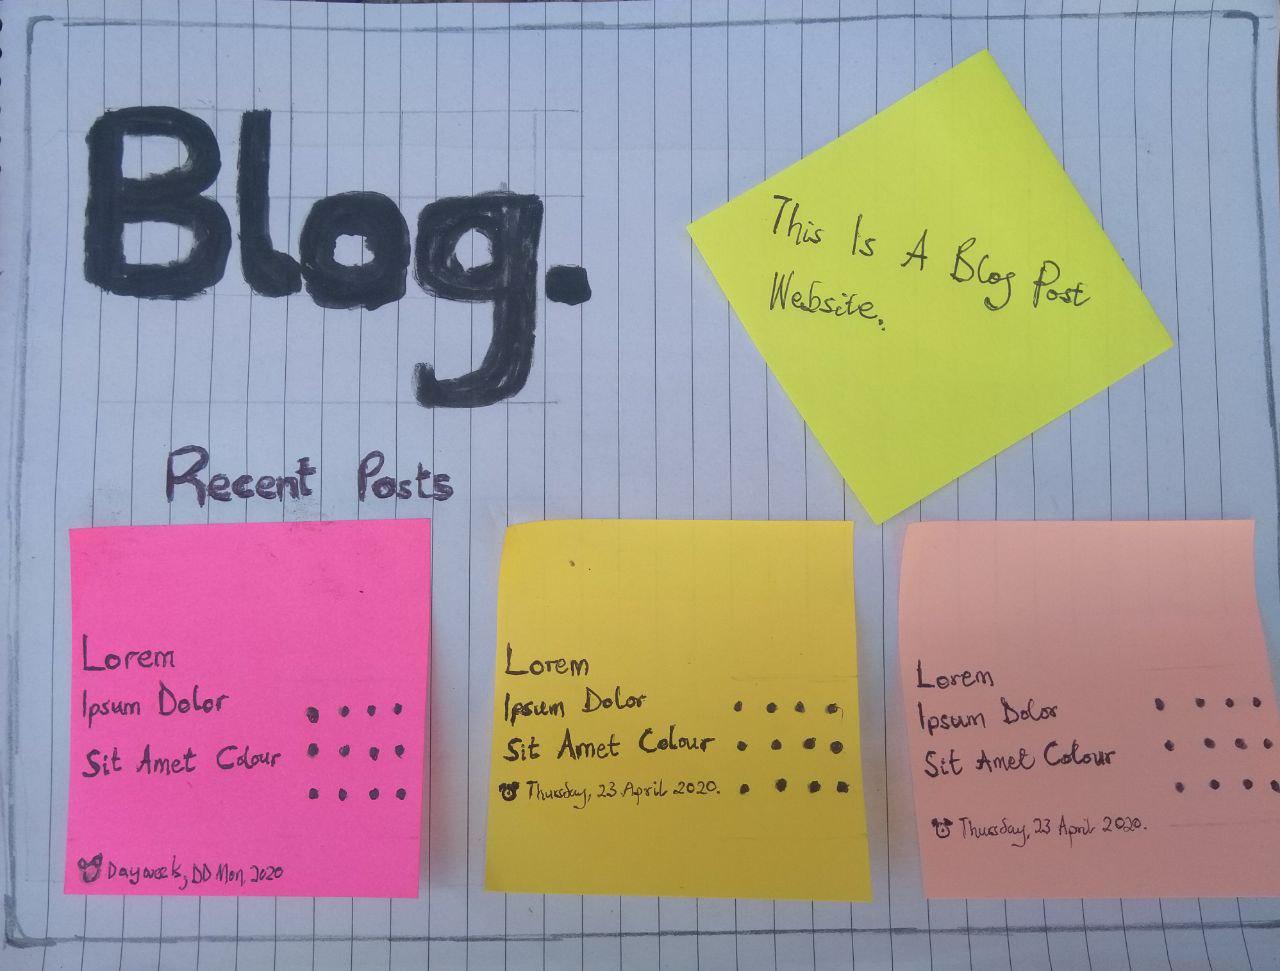 Blog.
This Is A Blog Post
Website.
Recent Posts
Lorem
Ipsum Dolor
Sit Amet Colour
Dayweek, DD Mon, 2020
Lorem
Ipsum Dolor
Sit Amet Colour
Thursday, 23 April 2020.
Lorem
Ipsum Dolor
Sit Amet Colour
Thursday, 23 April 2020.